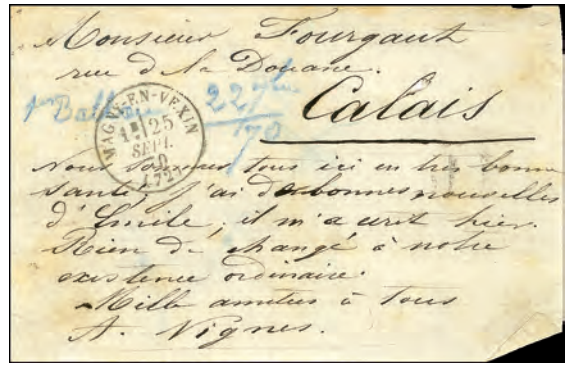 Monsieur Fourgaut
rue d la Douane.
Calais
1er Ballon 22 7bre
/70
MAGNY-EN-VEXIN
25
SEPT.
70
(72)
Nous sommes tous ici en très bonne
santé, j'ai de bonnes nouvelles
d'Emile, il m'a écrit hier.
Rien de changé à notre
existence ordinaire.
Mille amitiés à tous
A. Vignes.